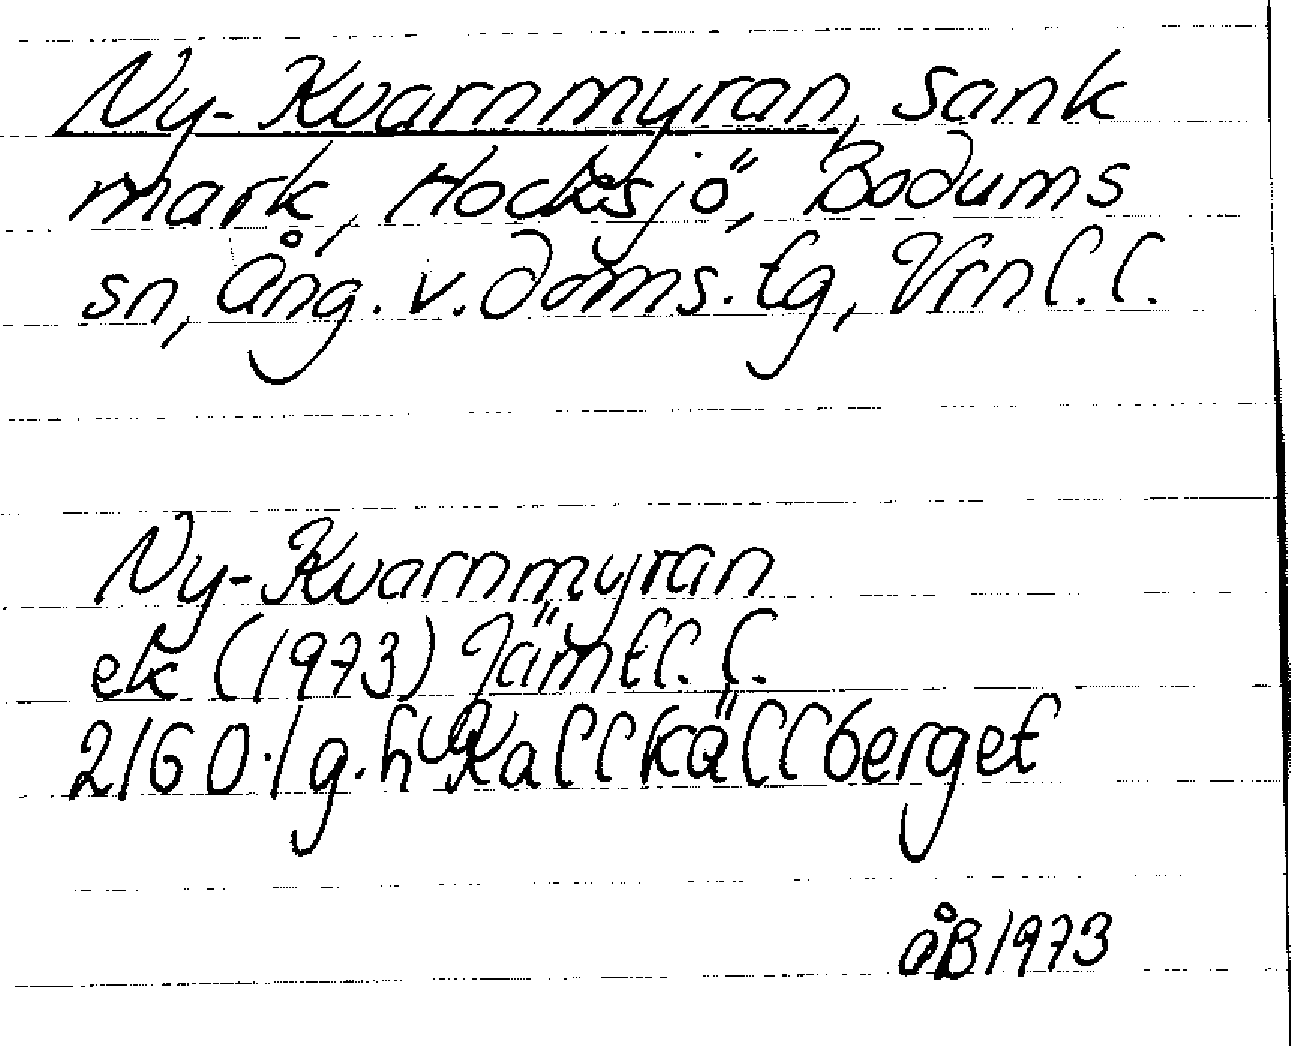 Ny-Kvarnmyran, sank
mark, Hocksjö, Bodums
sn, Ång. v. doms. tg, Vrnl. l.
Ny-Kvarnmyran
ek (1973) Jämtl. l.
2160·1 g.h Kallkällberget
åB 1973